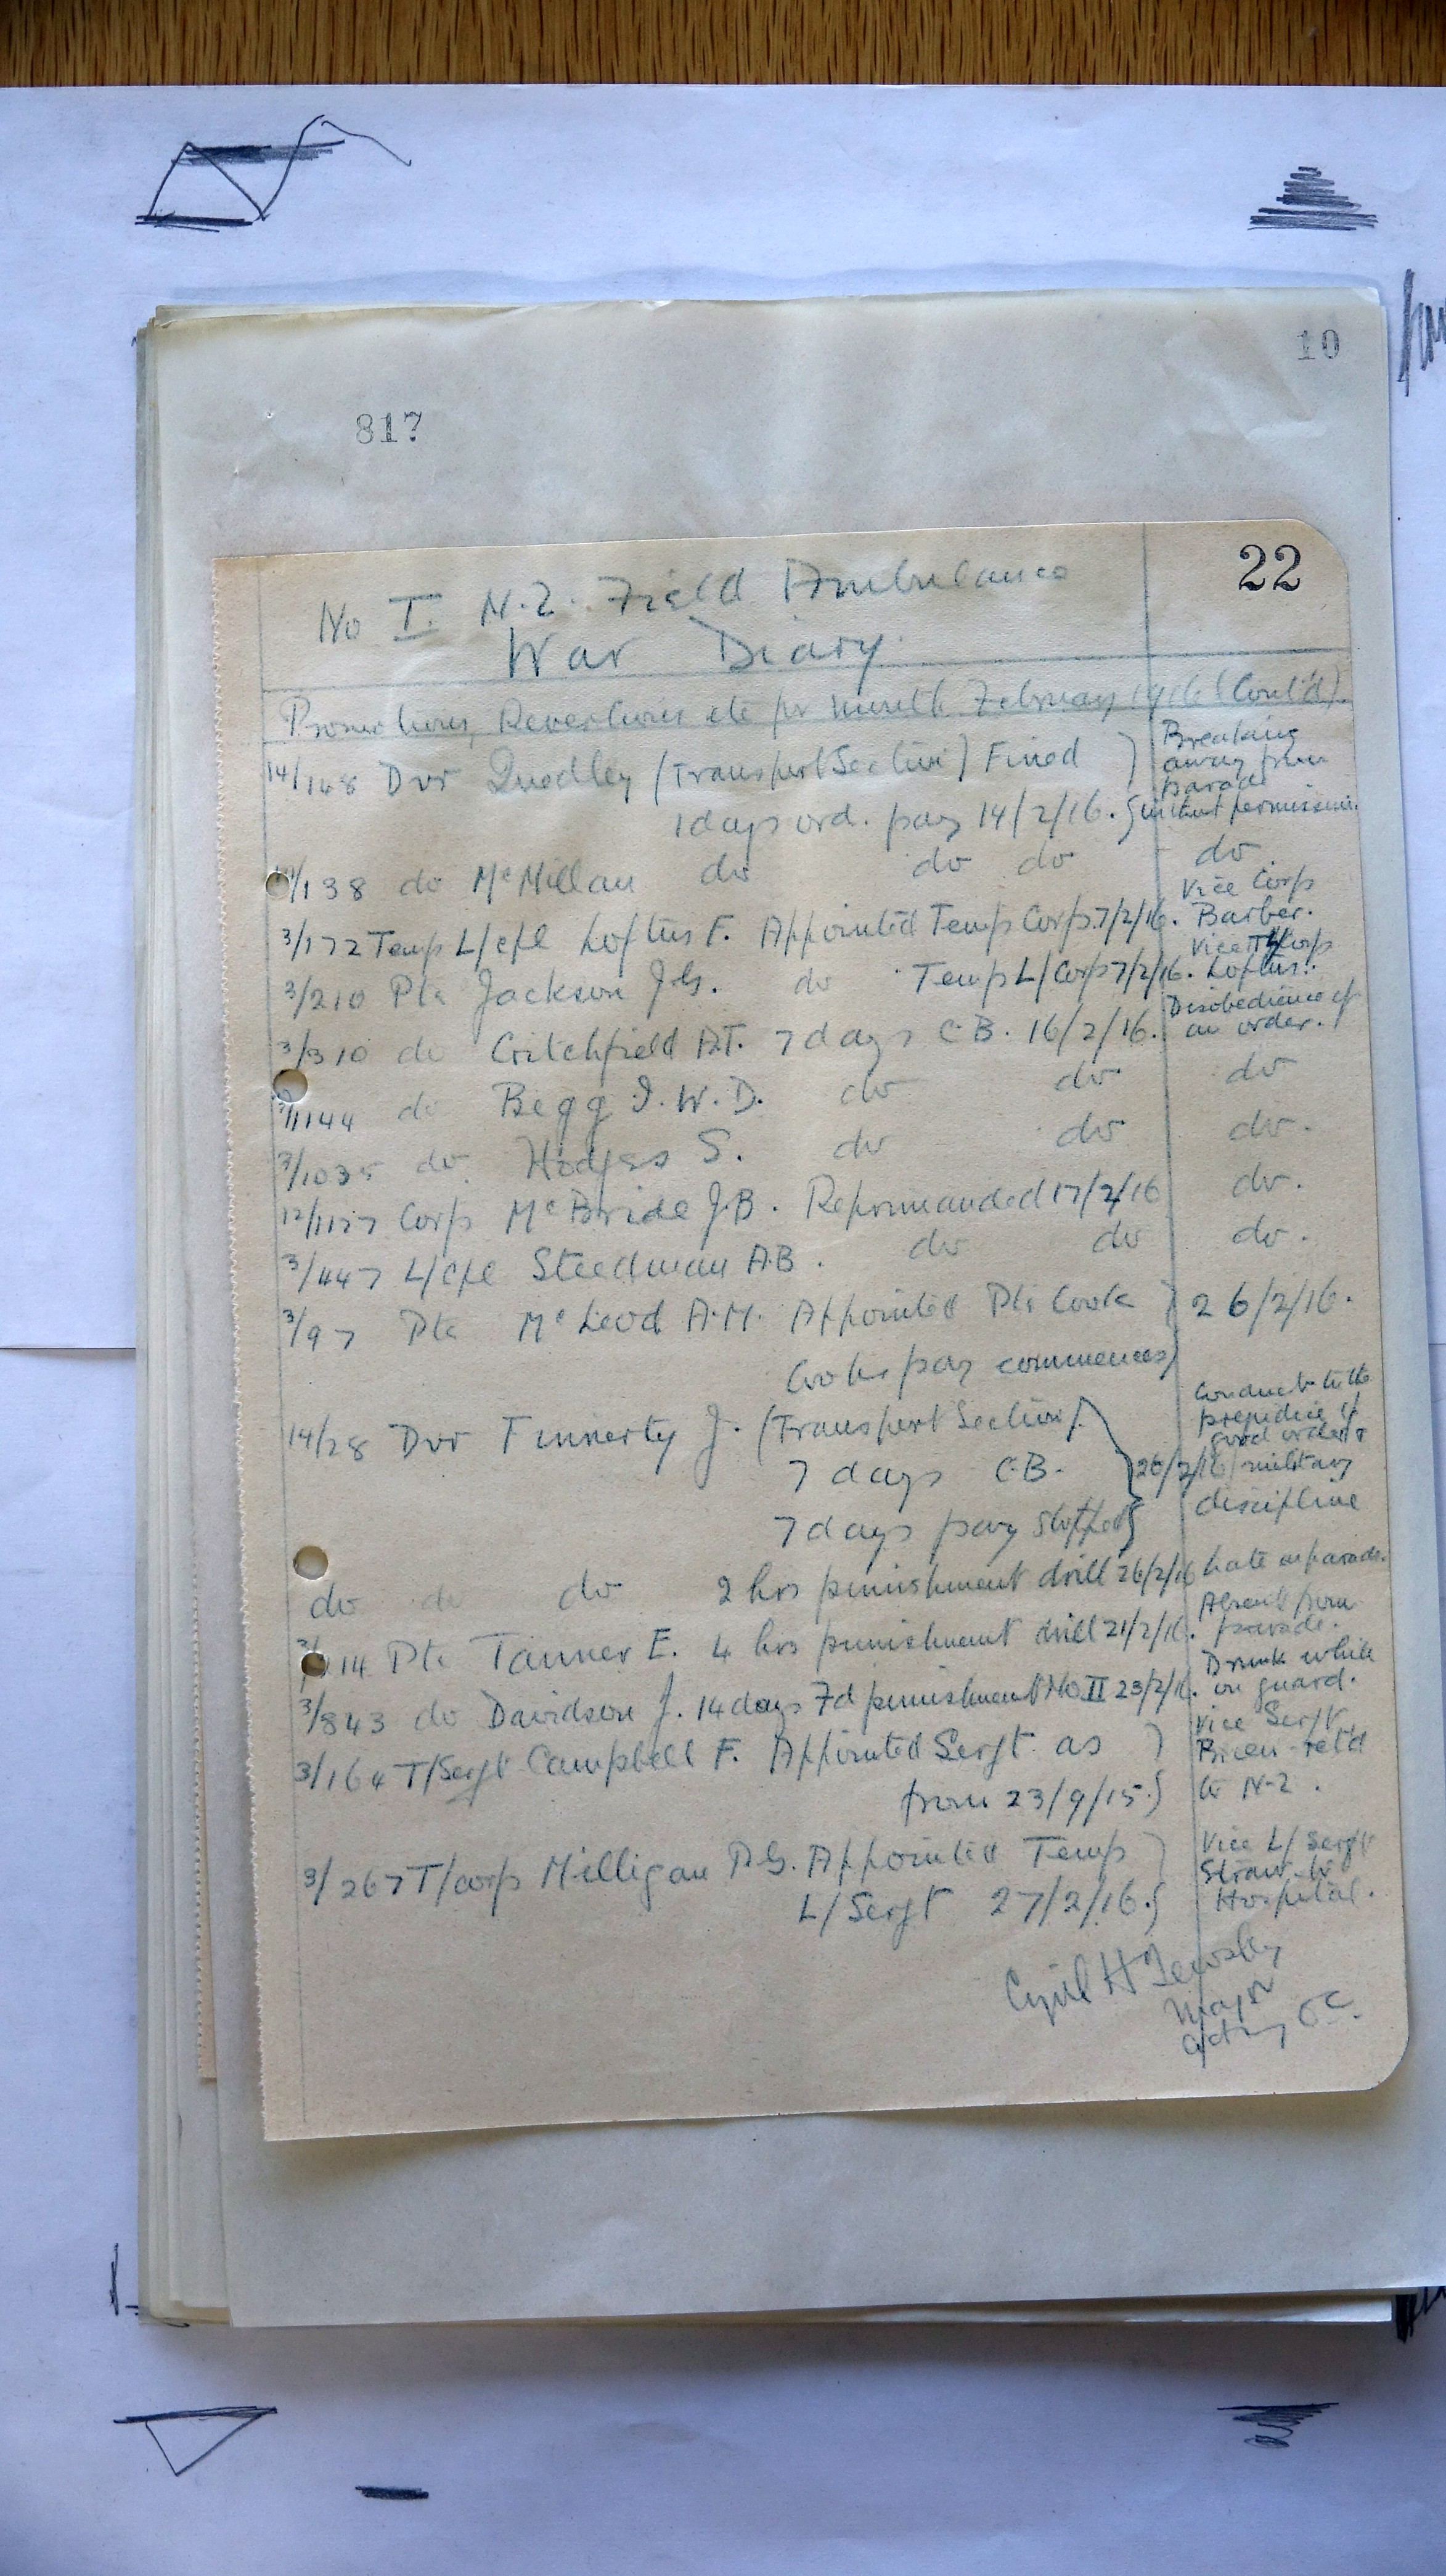 10
817
22
No I. N.Z. Field Ambulance
War Diary.
Promotions, Reversions etc for month February 1916 (Cont'd).
14/148 Dvr Quedley (Transport Section) Fined } Breaking away from parade
1 days ord. pay 14/2/16. } without permission.
/138 do McMillan do do do do.
3/172 Temp L/cpl Loftus F. Appointed Temp Corp 7/2/16. Vice Corp Barber.
3/210 Pte Jackson J.G. do Temp L/Corp 7/2/16. Vice Corp Loftus.
3/310 do Critchfield A.T. 7 days C.B. 16/2/16. Disobedience of an order.
/1144 do Begg J.W.D. do do do
3/1035 do Hodges S. do do do.
12/1127 Corp McBride J.B. Reprimanded 17/2/16 do.
3/447 L/cpl Steedman A.B. do do do.
3/97 Pte McLeod A.M. Appointed Pte Cook } 26/2/16.
Cooks pay commences }
14/28 Dvr Finnerty J. (Transport Section) } Conduct to the prejudice of
7 days C.B. } 26/2/16 good order & military
7 days pay stopped } discipline
do do do 2 hrs punishment drill 26/2/16 Late on parade.
14 Pte Tanner E. 4 hrs punishment drill 21/2/16. Absent from parade.
3/843 do Davidson J. 14 days Fd punishment No II 23/2/16. Drunk while on guard.
3/164 T/Sergt Campbell F. Appointed Sergt as } Vice Sergt retd
from 23/9/15. } to N-Z.
3/267 T/corp Milligan R.G. Appointed Temp } Vice L/Sergt
L/Sergt 27/2/16. } to Hospital.
Cyril H Tewsley
Major
acting OC.